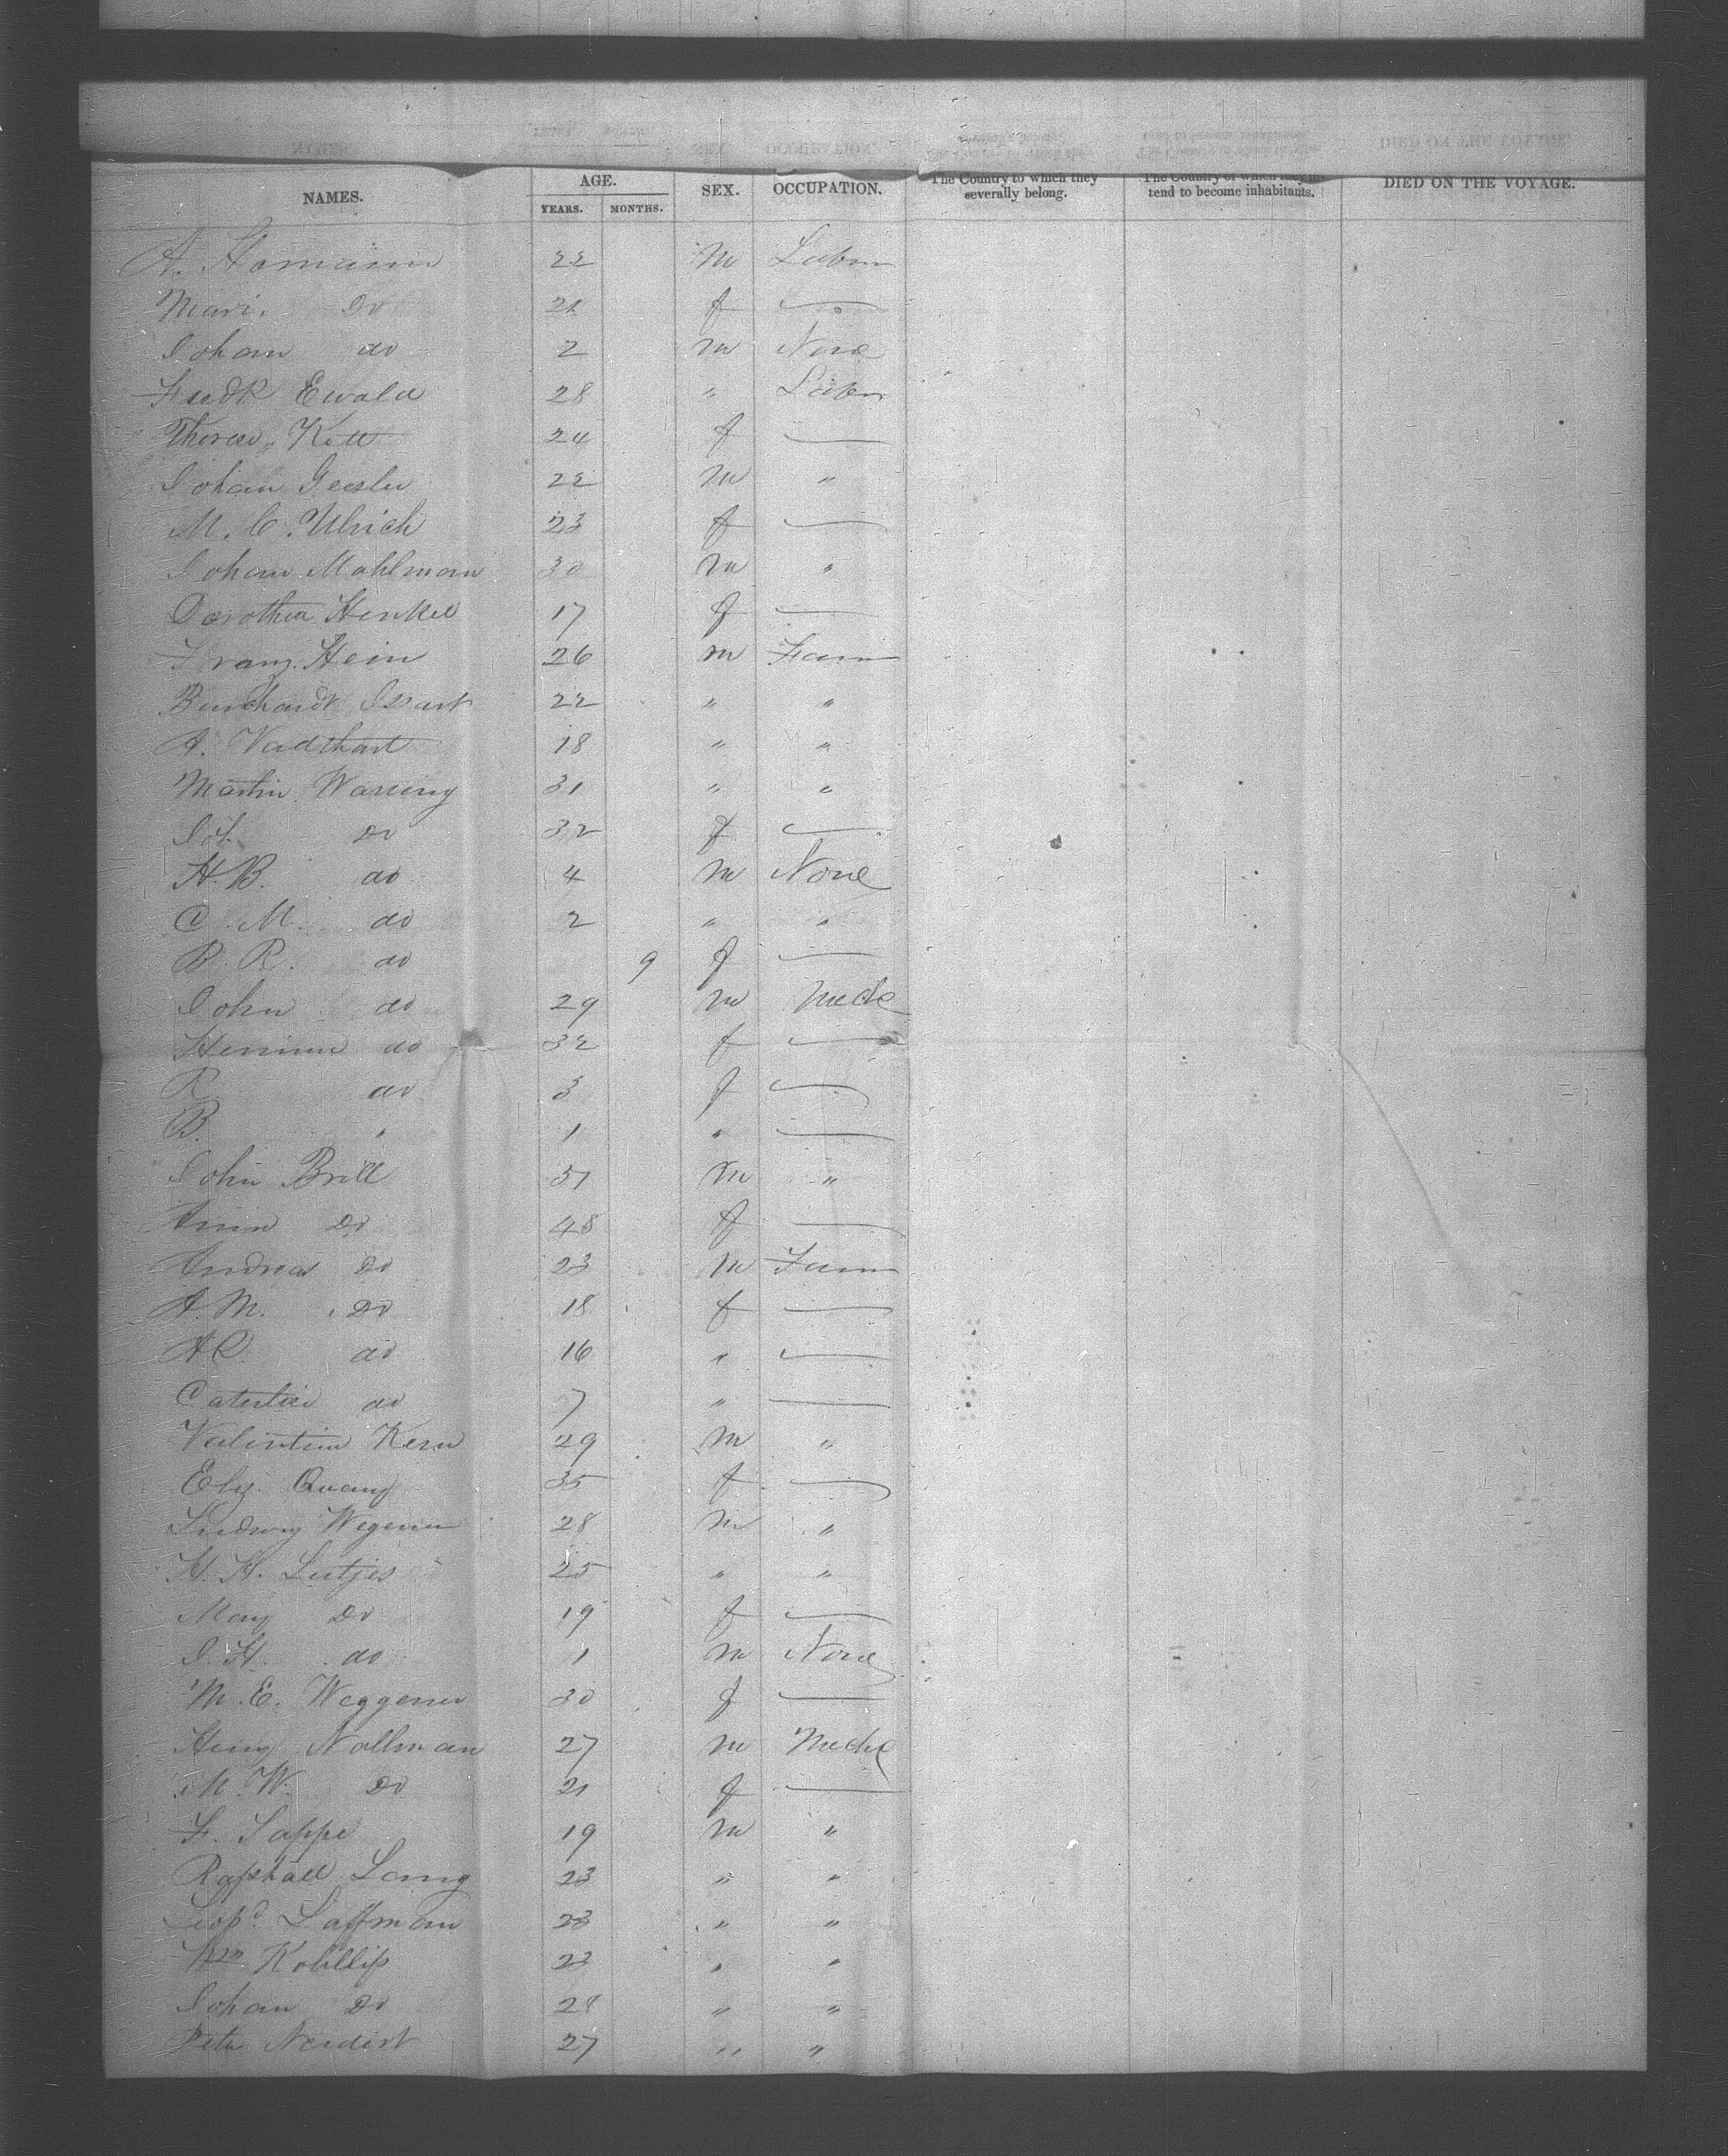 NAMES. AGE. YEARS. MONTHS. SEX. OCCUPATION. The Country to which they severally belong. The Country of which they in tend to become inhabitants. DIED ON THE VOYAGE.
A. Homann 22 m Labr
Mari. Do 21 f —
Johan do 2 m None
Fredk Ewald 28 " Labr
Therese 24 f —
Johan Geesler 22 m "
M. C. Ulrich 23 f —
Johan Mahlman 30 m "
Dorothea Henkel 17 f —
Franz. Hein 26 m Farm
22 " "
A. 18 " "
Martin 31 " "
Joh. Do 32 f —
H. B. do 4 m None
C. M. do 2 " "
B. R. do 9 f —
John do 29 m Mech
do 32 f —
R do 3 f —
B. " 1 " —
John Brill 51 m "
Ann Do 48 f —
Andreas Do 23 m Farm
A. M. Do 18 f —
A C. do 16 " —
do 7 " —
Valentine Kern 29 m "
Eliz. Quanz 35 f —
Ludwig Wegener 28 m "
H. H. Lutjes 25 " "
Mary Do 19 f —
J. H. do 1 m None
M. E. Weggener 30 f —
Henry Nollman 27 m Mech
M. W. Do 21 f —
F. Sappe 19 m "
Raphael Lang 23 " "
Leopd. Laffman 23 " "
Wm 23 " "
Johan Do 28 " "
Peter 27 " "